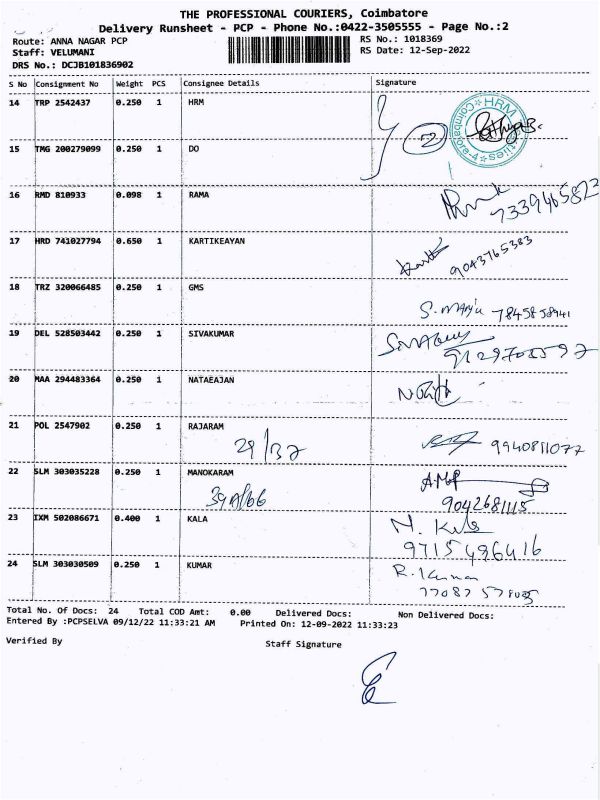 THE PROFESSIONAL COURIERS, Coimbatore
Delivery Runsheet - PCP - Phone No.:0422-3505555 - Page No.:2
Route: ANNA NAGAR PCP RS No.: 1018369
Staff: VELUMANI RS Date: 12-Sep-2022
DRS No.: DCJB101836902
S No Consignment No Weight PCS Consignee Details Signature
14 TRP 2542437 0.250 1 HRM
2
HRM
Coimbatore-4
15 TMG 200279099 0.250 1 DO
16 RMD 810933 0.098 1 RAMA
7339465822
17 HRD 741027794 0.650 1 KARTIKEAYAN
9043765383
18 TRZ 320066485 0.250 1 GMS
S. Manju 7845858941
19 DEL 528503442 0.250 1 SIVAKUMAR
20 MAA 294483364 0.250 1 NATAEAJAN
21 POL 2547902 0.250 1 RAJARAM
29/37 9940811077
22 SLM 303035228 0.250 1 MANOKARAM
39A/66 9042681115
23 IXM 502086671 0.400 1 KALA
9715496416
24 SLM 303030509 0.250 1 KUMAR
R. Kumar
Total No. Of Docs: 24 Total COD Amt: 0.00 Delivered Docs: Non Delivered Docs:
Entered By :PCPSELVA 09/12/22 11:33:21 AM Printed On: 12-09-2022 11:33:23
Verified By Staff Signature